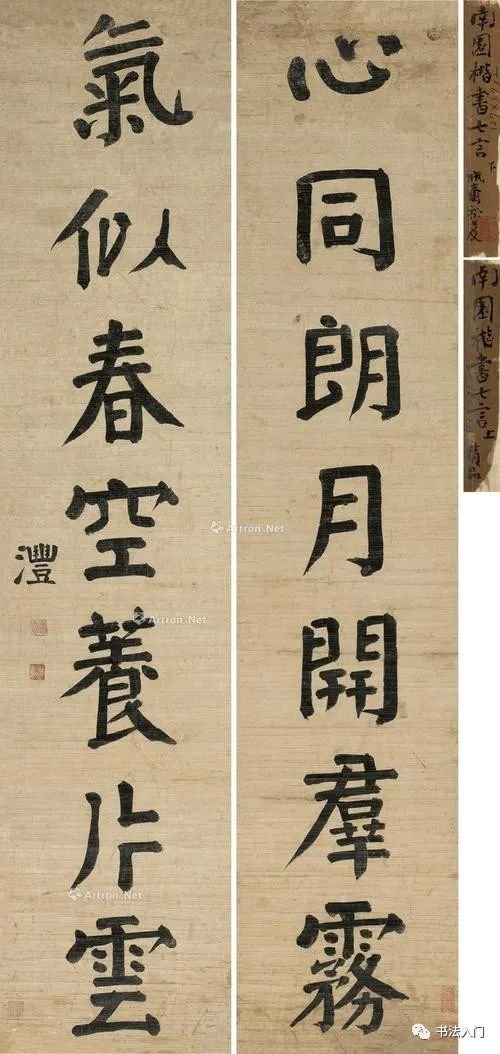 心同朗月開羣霧
氣似春空養片雲
灃
南園楷書七言下
南園楷書七言上
精品
Artron.Net
Artron.Net
Artron.Net
书法入门